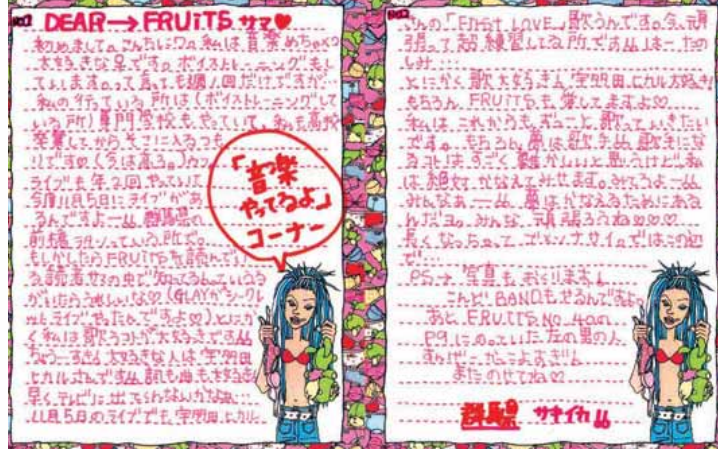 No.1
DEAR→FRUiTS サマ♥
初めまして。こんちにワ。私は音楽めちゃめちゃ
大好きな早です。ボイストレーニングもし
ています。って言っても週1回だけですが…
私の行っている所は(ボイストレーニングして
いる所)専門学校もやっていて、私も高校
卒業したらそこに入るつも
りです♡(今は高3。)
ライブも年2回やっていて
今度11月5日にライブがあ
るんですよー 群馬県の
前橋 っていう所で。
もしかしたらFRUiTSを読んでい
る読者サマの中で知ってる人ていうう
がいたらうれしいな♡(GLAYが
ライブやったとこですよ♡)とにか
く私は歌うコトが大好きです
ちょうーすきな大好きな人は宇多田
ヒカルさんです 詞も曲も大好き
早くテレビに出てくんないかなぁ…
11月5日のライブでも、宇多田ヒカル
「音楽
やってるよ」
コーナー
No.2
さんの「First LOVE」歌うんです。今、頑
張って超練習してる所です はーたの
しみ…
とにかく歌大好きさ 宇多田ヒカル大好き!
もちろん、FRUiTSも愛してますよ♡
私は、これからもずーっと歌っていきたい
です。もちろん夢は歌手 歌手にな
るコトはすごく難かしいと思うけど、私
は絶対かなえてみせます。みてろよー
みんなぁー 夢はかなえるためにある
んだヨ。みんな、頑張ろうね♡♡♡
長くなっちゃって ゴメンナサイ。ではこの辺
で…
PS→写真もおくります!
こんど、BANDもやるんですよ。
あと、FRUiTS NO.40の
P9にのっていた左の男の人
すんげーかっこよすぎ!!
またのせてね♡
群馬県 サキイカ